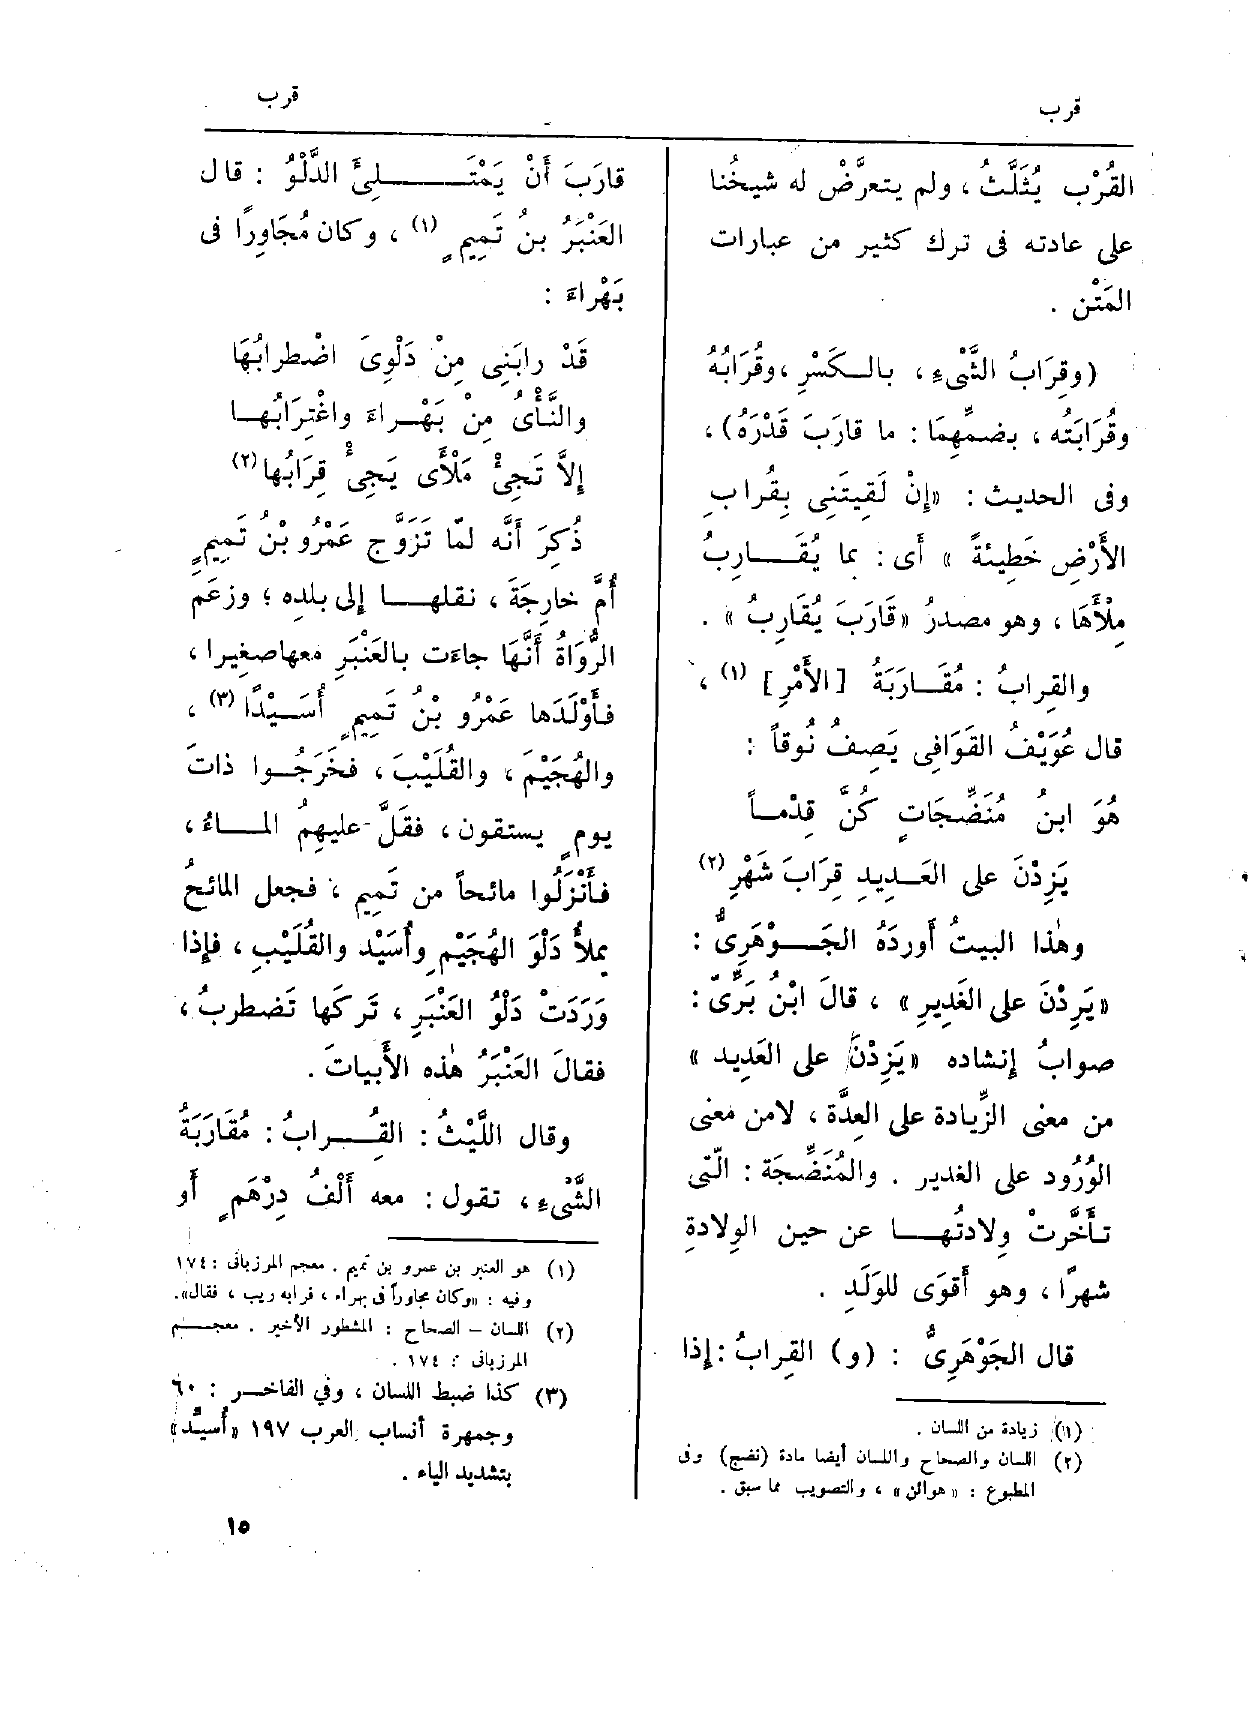 قرب
القُرْب يُثَلَّثُ ، ولم يتعرَّضْ له شيخُنا
على عادته فى ترك كثير من عبارات
المَتْن .
(وقِرَابُ الشَّىْءِ ، بالكَسْرِ ،وقُرَابُهُ
وقُرَابَتُه ، بضمِّهِمَا : ما قارَبَ قَدْرَهُ) ،
وفى الحديث : «إنْ لَقِيتَنِى بِقُرابِ
الأَرْضِ خَطِيئةً » أَى : بما يُقَارِبُ
مِلْأَهَا ، وهو مصدرُ «قَارَبَ يُقارِبُ » .
والقِرابُ : مُقَارَبَةُ [الأَمْرِ] (١) ،
قال عُوَيْفُ القَوَافِى يَصِفُ نُوقاً :
هُوَ ابنُ مُنَضِّجَاتٍ كُنَّ قِدْماً
يَزِدْنَ على العَدِيدِ قِرَابَ شَهْرِ (٢)
وهٰذا البيتُ أَوردَهُ الجَوْهَرِىُّ :
«يَرِدْنَ على الغَدِيرِ» ، قالَ ابْنُ بَرِّىّ :
صوابُ إنْشاده «يَزِدْنَ على العَدِيد »
من معنى الزِّيادة على العِدَّة ، لامن معنى
الوُرُود على الغدير . والمُنَضِّجَة : الّتى
تأَخَّرتْ وِلادتُها عن حين الوِلادةِ
شهرًا ، وهو أَقوَى للوَلَدِ .
قال الجَوْهَرِىُّ : (و) القِرابُ :إذا
(١) زيادة من اللسان .
(٢) اللسان والصحاح واللسان أيضا مادة (نضج) وفى
المطبوع : «هوالن» ، والتصويب مما سبق .
قرب
قارَبَ أَنْ يَمْتَلِىَّ الدَّلْوُ : قال
العَنْبَرُ بنُ تَمِيمٍ (١) ، وكان مُجَاوِرًا فى
بَهْراءَ :
قَدْ رابَنِى مِنْ دَلْوِىَ اضْطرابُهَا
والنَّأْىُ مِنْ بَهْراءَ واغْتِرَابُها
إلاَّ تَجِىْ مَلْأَى يَجِىْ قِرَابُها (٢)
ذُكِرَ أَنَّه لمّا تَزَوَّج عَمْرُو بْنُ تَمِيمٍ
أُمَّ خارِجَةَ ، نقلها إلى بلدِه ؛ وزعَم
الرُّوَاةُ أَنَّهَا جاءَت بالعَنْبَرِ معهاصغيرا ،
فأَوْلَدَها عَمْرُو بْنُ تَمِيمٍ أُسَيْدًا (٣) ،
والهُجَيْمَ ، والقُلَيْبَ ، فخَرَجُوا ذاتَ
يومٍ يستقون ، فقَلَّ عليهِمُ الماءُ ،
فأَنْزَلُوا مائحاً من تَمِيم ، فجعل المائحُ
يملأُ دَلْوَ الهُجَيْمِ وأُسَيْد والقُلَيْبِ ، فإذا
وَرَدَتْ دَلْوُ العَنْبَرِ ، تَركَها تَضطربُ ،
فقالَ العَنْبَرُ هٰذه الأَبياتَ .
وقال اللَّيْثُ : القِرابُ : مُقَارَبَةُ
الشَّىْءِ ، تقول : معه أَلْفُ دِرْهَمٍ أَو
(١) هو العنبر بن عمرو بن تميم . معجم المرزبانى : ١٧٤
وفيه : «وكان مجاوراً فى بهراء ، فرابه ريب ، فقال».
(٢) اللسان – الصحاح : المشطور الأخير . معجم
المرزبانى : ١٧٤ .
(٣) كذا ضبط اللسان ، وفي الفاخر : ٦٠
وجمهرة أنساب العرب ١٩٧ «أُسيِّد»
بتشديد الياء .
١٥